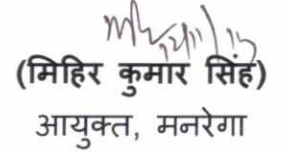 (मिहिर कुमार सिंह)
आयुक्त, मनरेगा